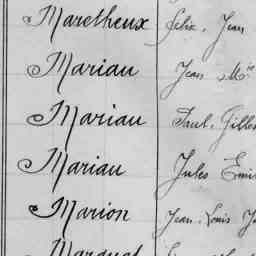 Maretheux Félix, Jean
Mariau Jean Mie
Mariau Paul, Gilles
Mariau Jules Emi
Marion Jean, Louis J